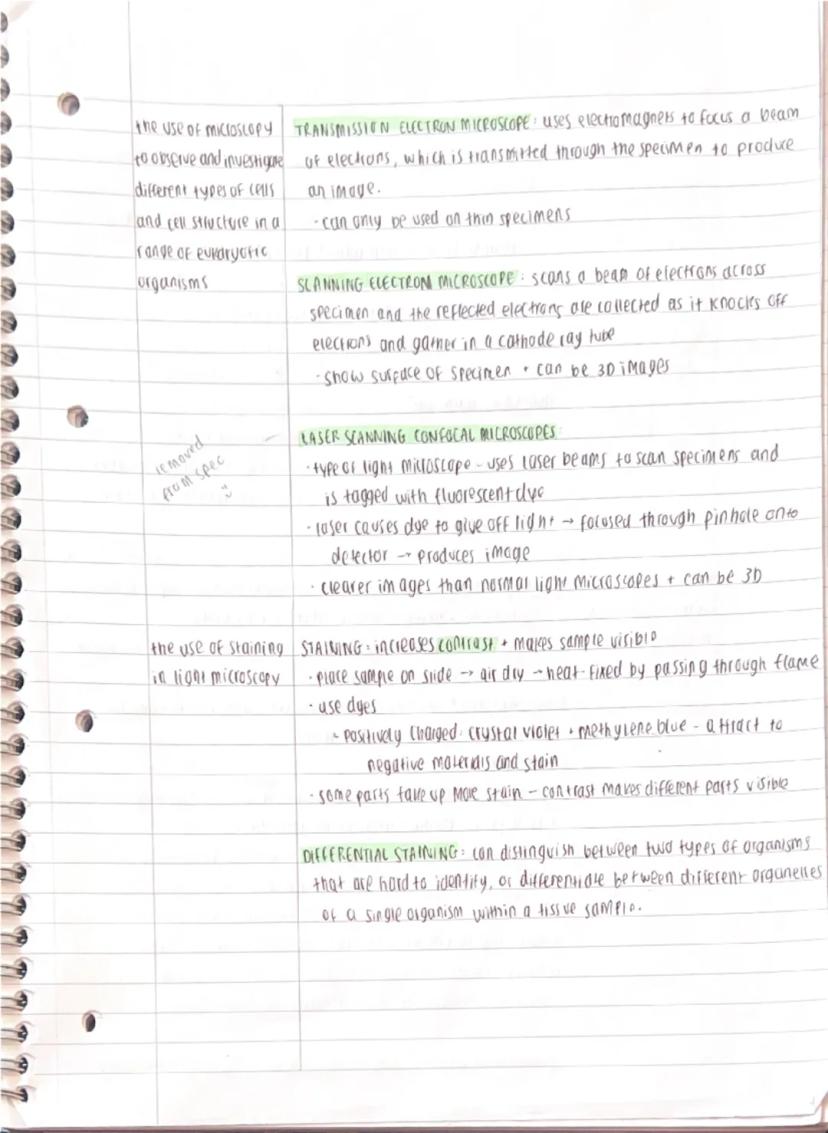 the use of microscopy
to observe and investigate
different types of cells
and cell structure in a
range of eukaryotic
organisms
TRANSMISSION ELECTRON MICROSCOPE: uses electromagnets to focus a beam
of electrons, which is transmitted through the specimen to produce
an image.
· can only be used on thin specimens
SCANNING ELECTRON MICROSCOPE: scans a beam of electrons across
specimen and the reflected electrons are collected as it knocks off
electrons and gather in a cathode ray tube
· show surface of specimen + can be 3D images
removed
from spec
LASER SCANNING CONFOCAL MICROSCOPES:
· type of light microscope - uses laser beams to scan specimens and
is tagged with fluorescent dye
· laser causes dye to give off light → focused through pinhole onto
detector → produces image
· clearer images than normal light microscopes + can be 3D
the use of staining
in light microscopy
STAINING: increases contrast + makes sample visible
· place sample on slide → air dry → heat-fixed by passing through flame
· use dyes
- positively charged: crystal violet + methylene blue - attract to
negative materials and stain
· some parts take up more stain - contrast makes different parts visible
DIFFERENTIAL STAINING: can distinguish between two types of organisms
that are hard to identify, or differentiate between different organelles
of a single organism within a tissue sample.